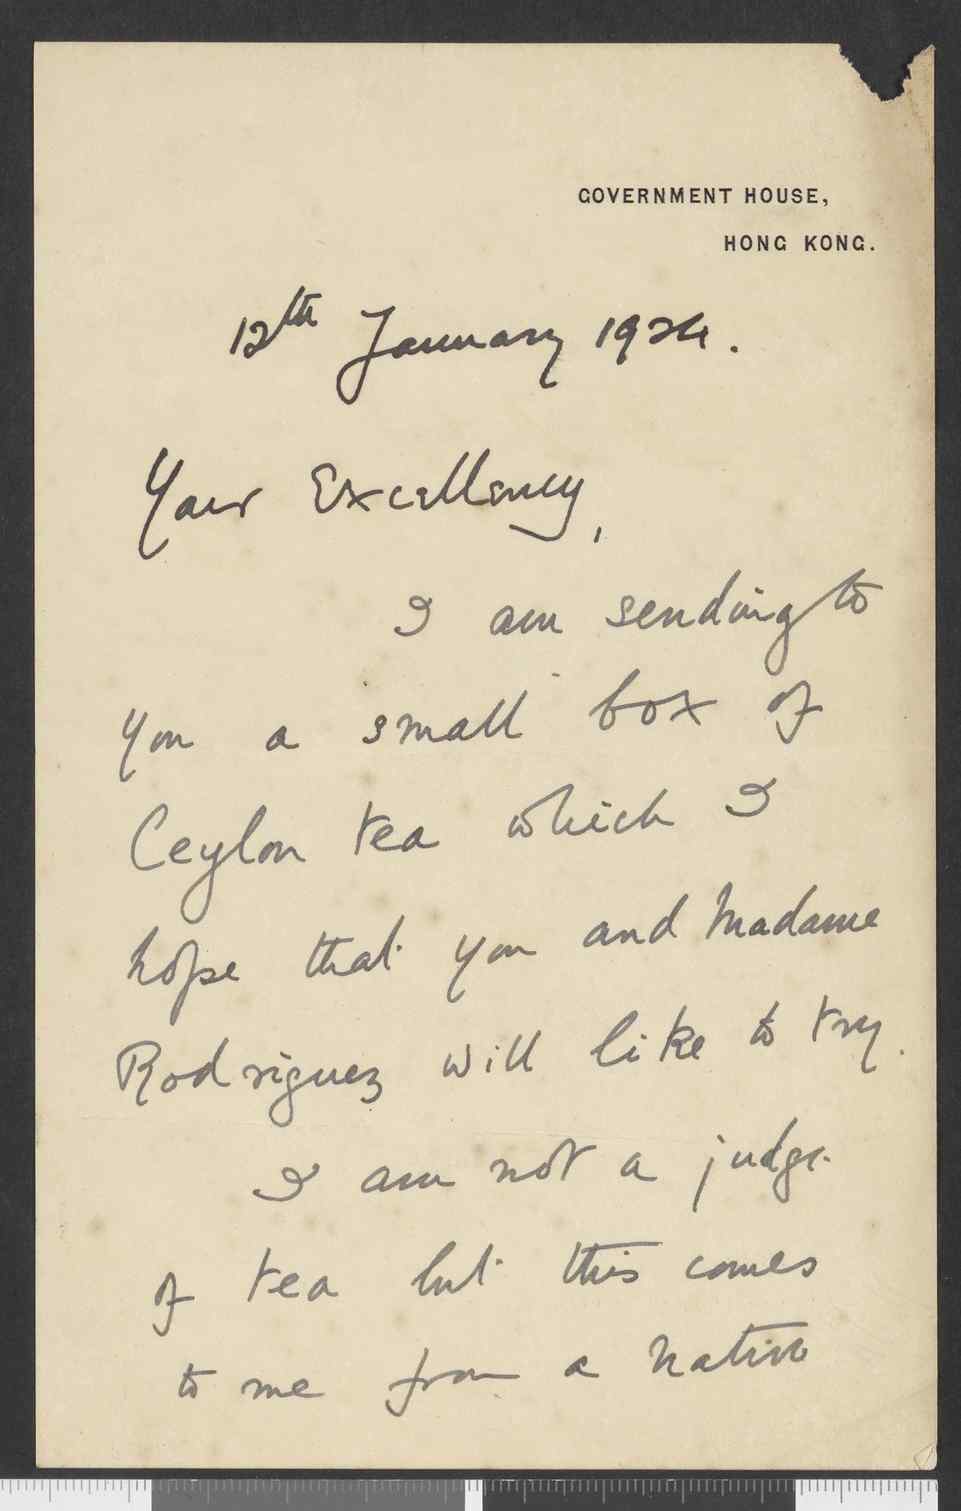 GOVERNMENT HOUSE,
HONG KONG.
12th January 1924.
Your Excellency,
I am sending to
you a small box of
Ceylon tea which I
hope that you and Madame
Rodriguez will like to try.
I am not a judge
of tea but this comes
to me from a native